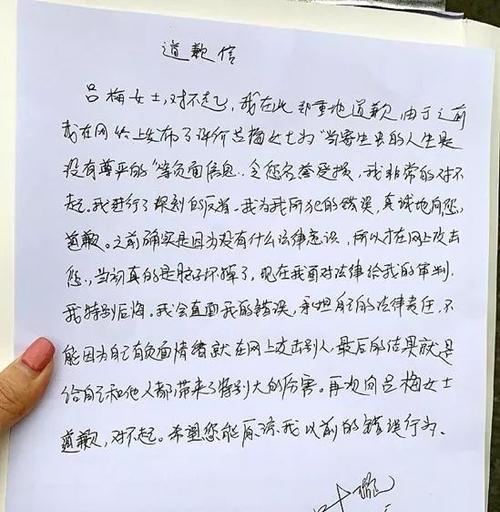 道歉信
吕梅女士,对不起,我在此郑重地道歉,由于之前
我在网络上发布了评价吕梅女士为“当寄生虫的人生是
没有尊严的”等负面信息..令您名誉受损,我非常的对不
起,我进行了深刻的反省.我为我所犯的错误,真诚地向您,
道歉。之前确实是因为没有什么法律意识,所以才在网上攻击
您.,当初真的是脑子坏掉了,现在我面对法律给我的审判.
我特别后悔。我会直面我的错误,承担自己的法律责任.不
能因为自己有负面情绪就在网上攻击别人,最后的结果就是
给自己和他人都带来了特别大的伤害。再次向吕梅女士
道歉,对不起。希望您能原谅我以前的错误行为.